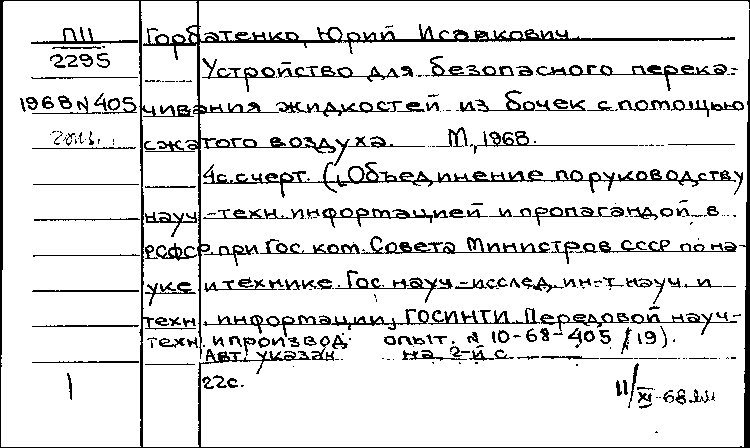 П11 Горбатенко, Юрий Исаакович
2295 Устройство для безопасного перека-
1968 N 405 чивания жидкостей из бочек с помощью
сжатого воздуха. М., 1968.
4с. с черт. („Объединение по руководству
науч.-техн. информацией и пропагандой в
РСФСР при Гос. ком. Совета Министров СССР по на-
уке и технике. Гос. науч.-исслед. ин-т науч. и
техн. информации, ГОСИНТИ. Передовой науч.-
техн. и производ. опыт. N 10-68-405/19).
Авт. указан на 2-й с.
1 22с. 11/XI-68